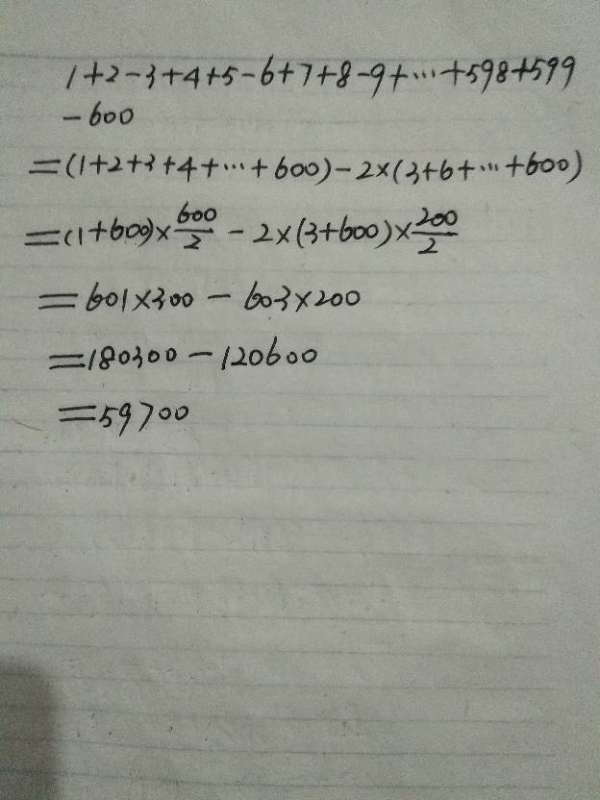 1+2-3+4+5-6+7+8-9+…+598+599
-600
=(1+2+3+4+…+600)-2×(3+6+…+600)
=(1+600)×600/2-2×(3+600)×200/2
=601×300-603×200
=180300-120600
=59700